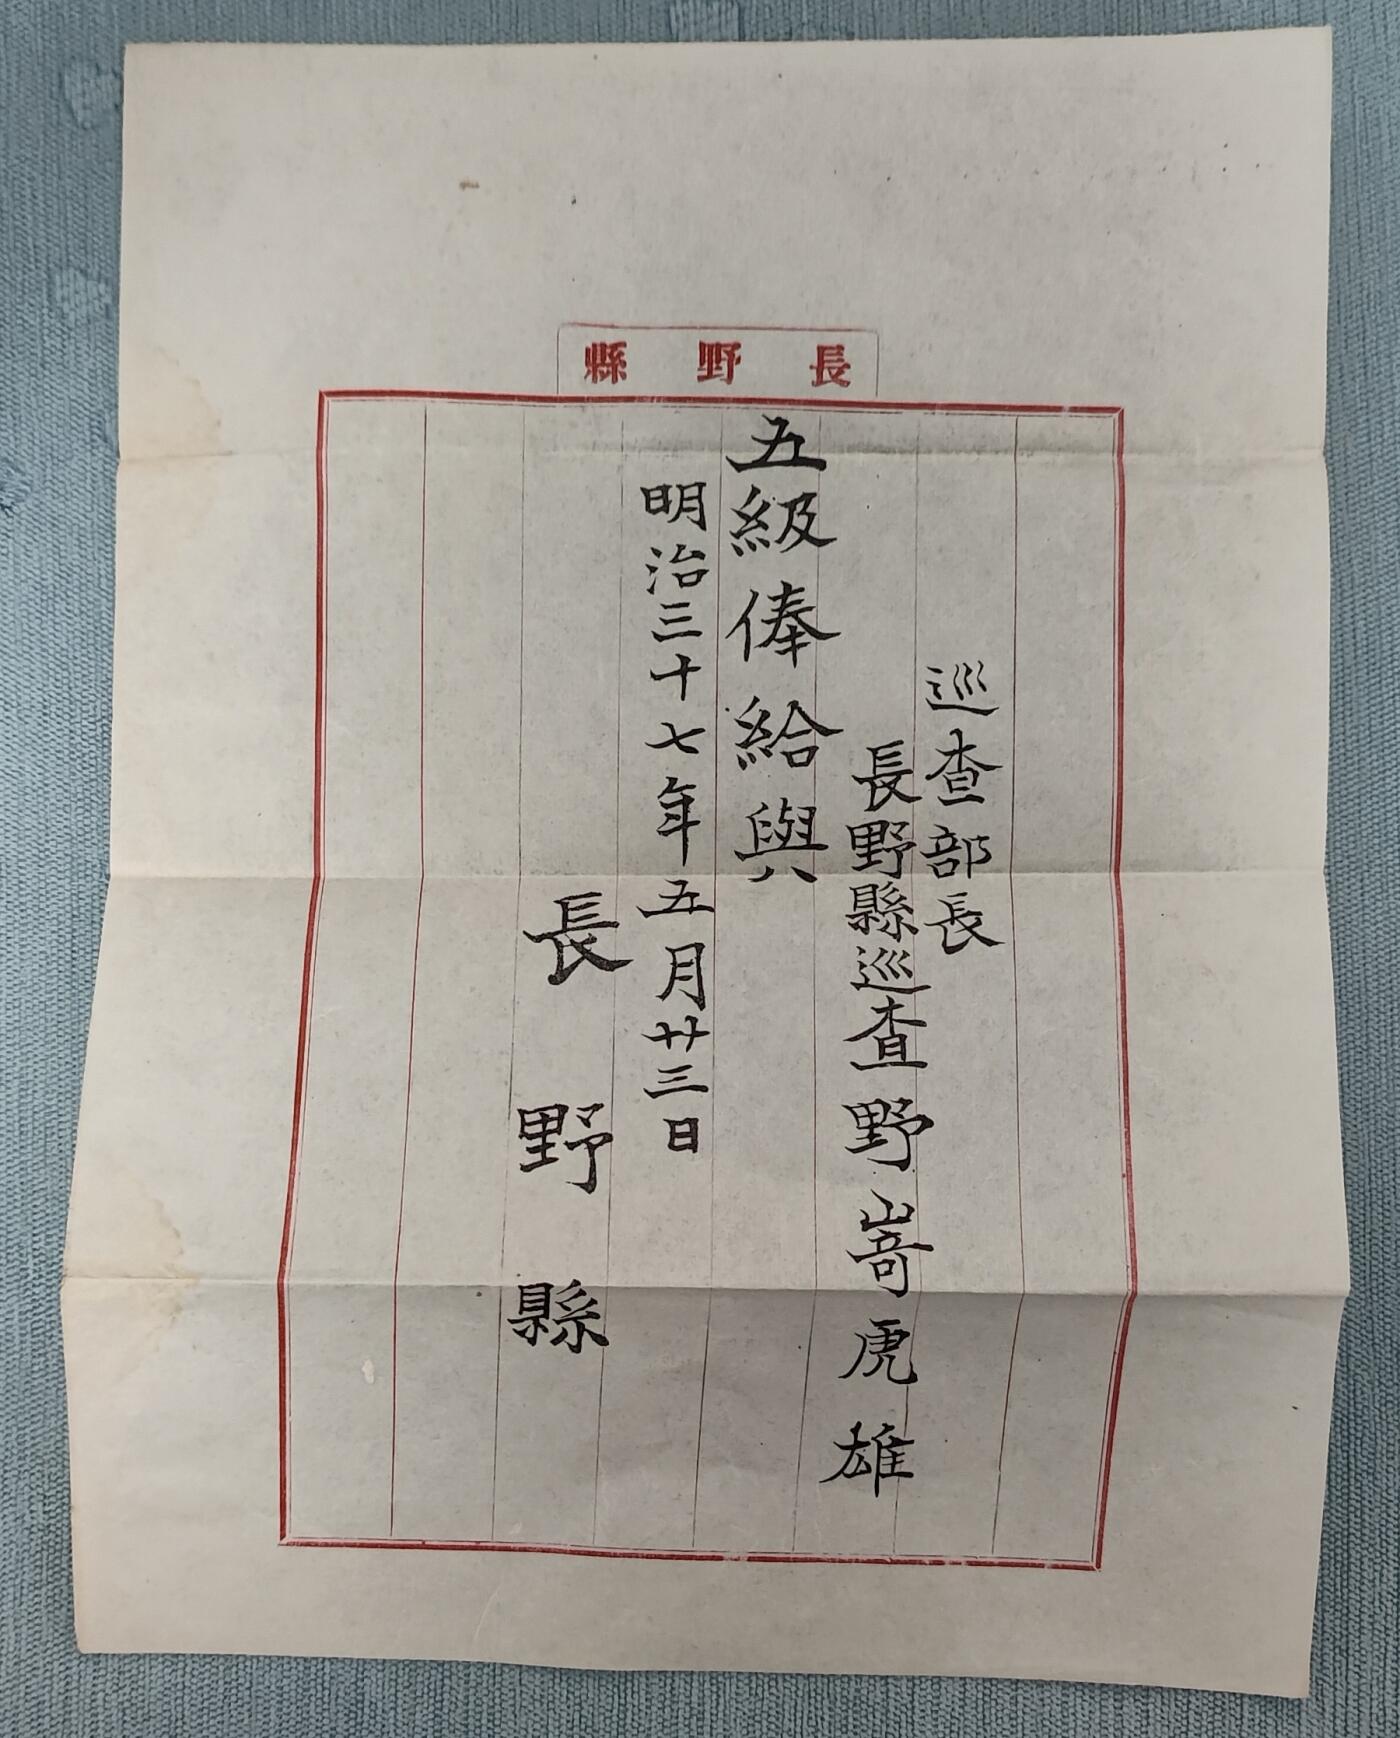 長野縣
巡査部長
長野縣巡査野嵜虎雄
五級俸給與
明治三十七年五月廿三日
長野縣